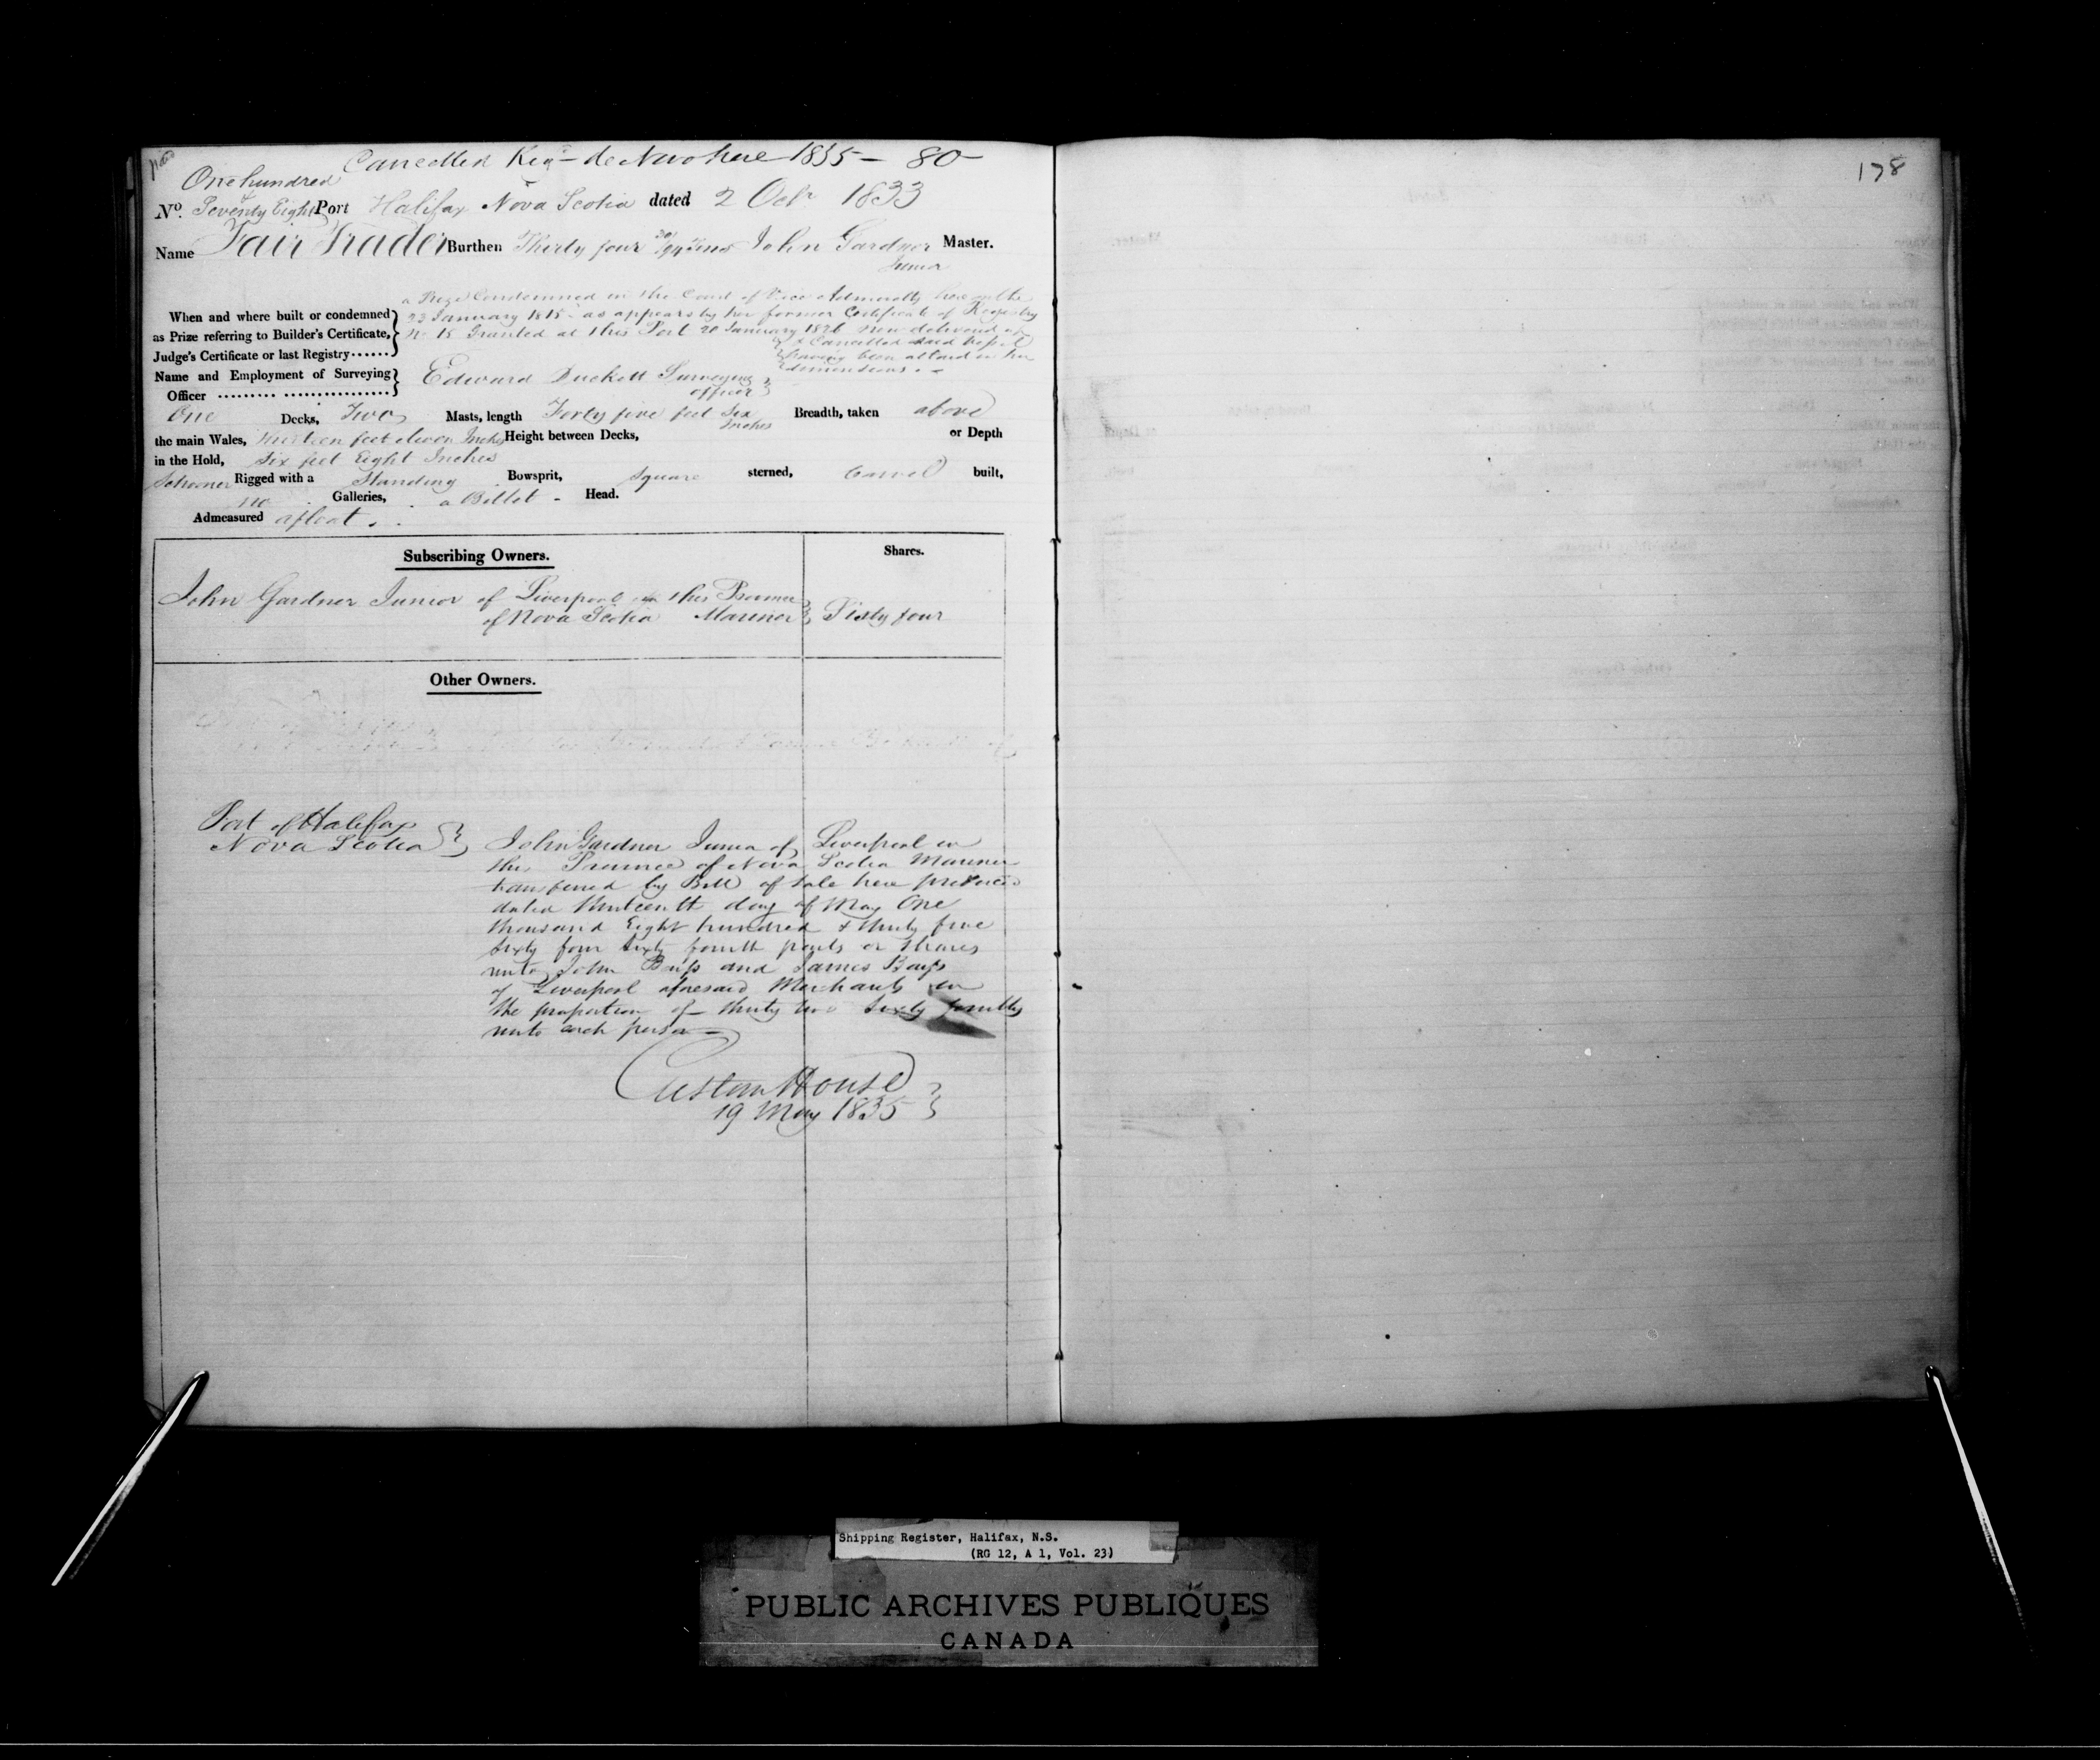 Cancelled Reg^d de Novo here 1835 — 80
178
One hundred &
No. Seventy Eight Port Halifax Nova Scotia dated 2 Oct^r 1833
Name Fair Trader Burthen Thirty four 30/94 Tons John Gardner Master.
Junior
a Prize Condemned in the Court of Vice Admiralty here on the
When and where built or condemned 23 January 1815 as appears by her former Certificate of Registry
as Prize referring to Builder's Certificate, No 15 Granted at this Port 20 January 1826 now delivered up
Judge's Certificate or last Registry...... & Cancelled said Vessel
having been altered in her
Name and Employment of Surveying Edward Duckett Surveying
Officer officer
One Decks, Two Masts, length Forty five feet Six Inches Breadth, taken above
the main Wales, thirteen feet eleven Inches Height between Decks, or Depth
in the Hold, Six feet Eight Inches
Schooner Rigged with a Standing Bowsprit, Square sterned, Carvel built,
no Galleries, a Billet Head.
Admeasured afloat.
Subscribing Owners. Shares.
John Gardner Junior of Liverpool in this Province
of Nova Scotia Mariner Sixty four
Other Owners.
Port of Halifax
Nova Scotia
John Gardner Junior of Liverpool in
the Province of Nova Scotia Mariner
transferred by Bill of Sale here produced
dated thirteenth day of May One
thousand Eight hundred & thirty five
Sixty four Sixty fourth parts or Shares
unto John Barss and James Barss
of Liverpool aforesaid Merchants in
the proportion of thirty two Sixty fourths
unto each person —
Custom House
19 May 1835
Shipping Register, Halifax, N.S.
(RG 12, A 1, Vol. 23)
PUBLIC ARCHIVES PUBLIQUES
CANADA